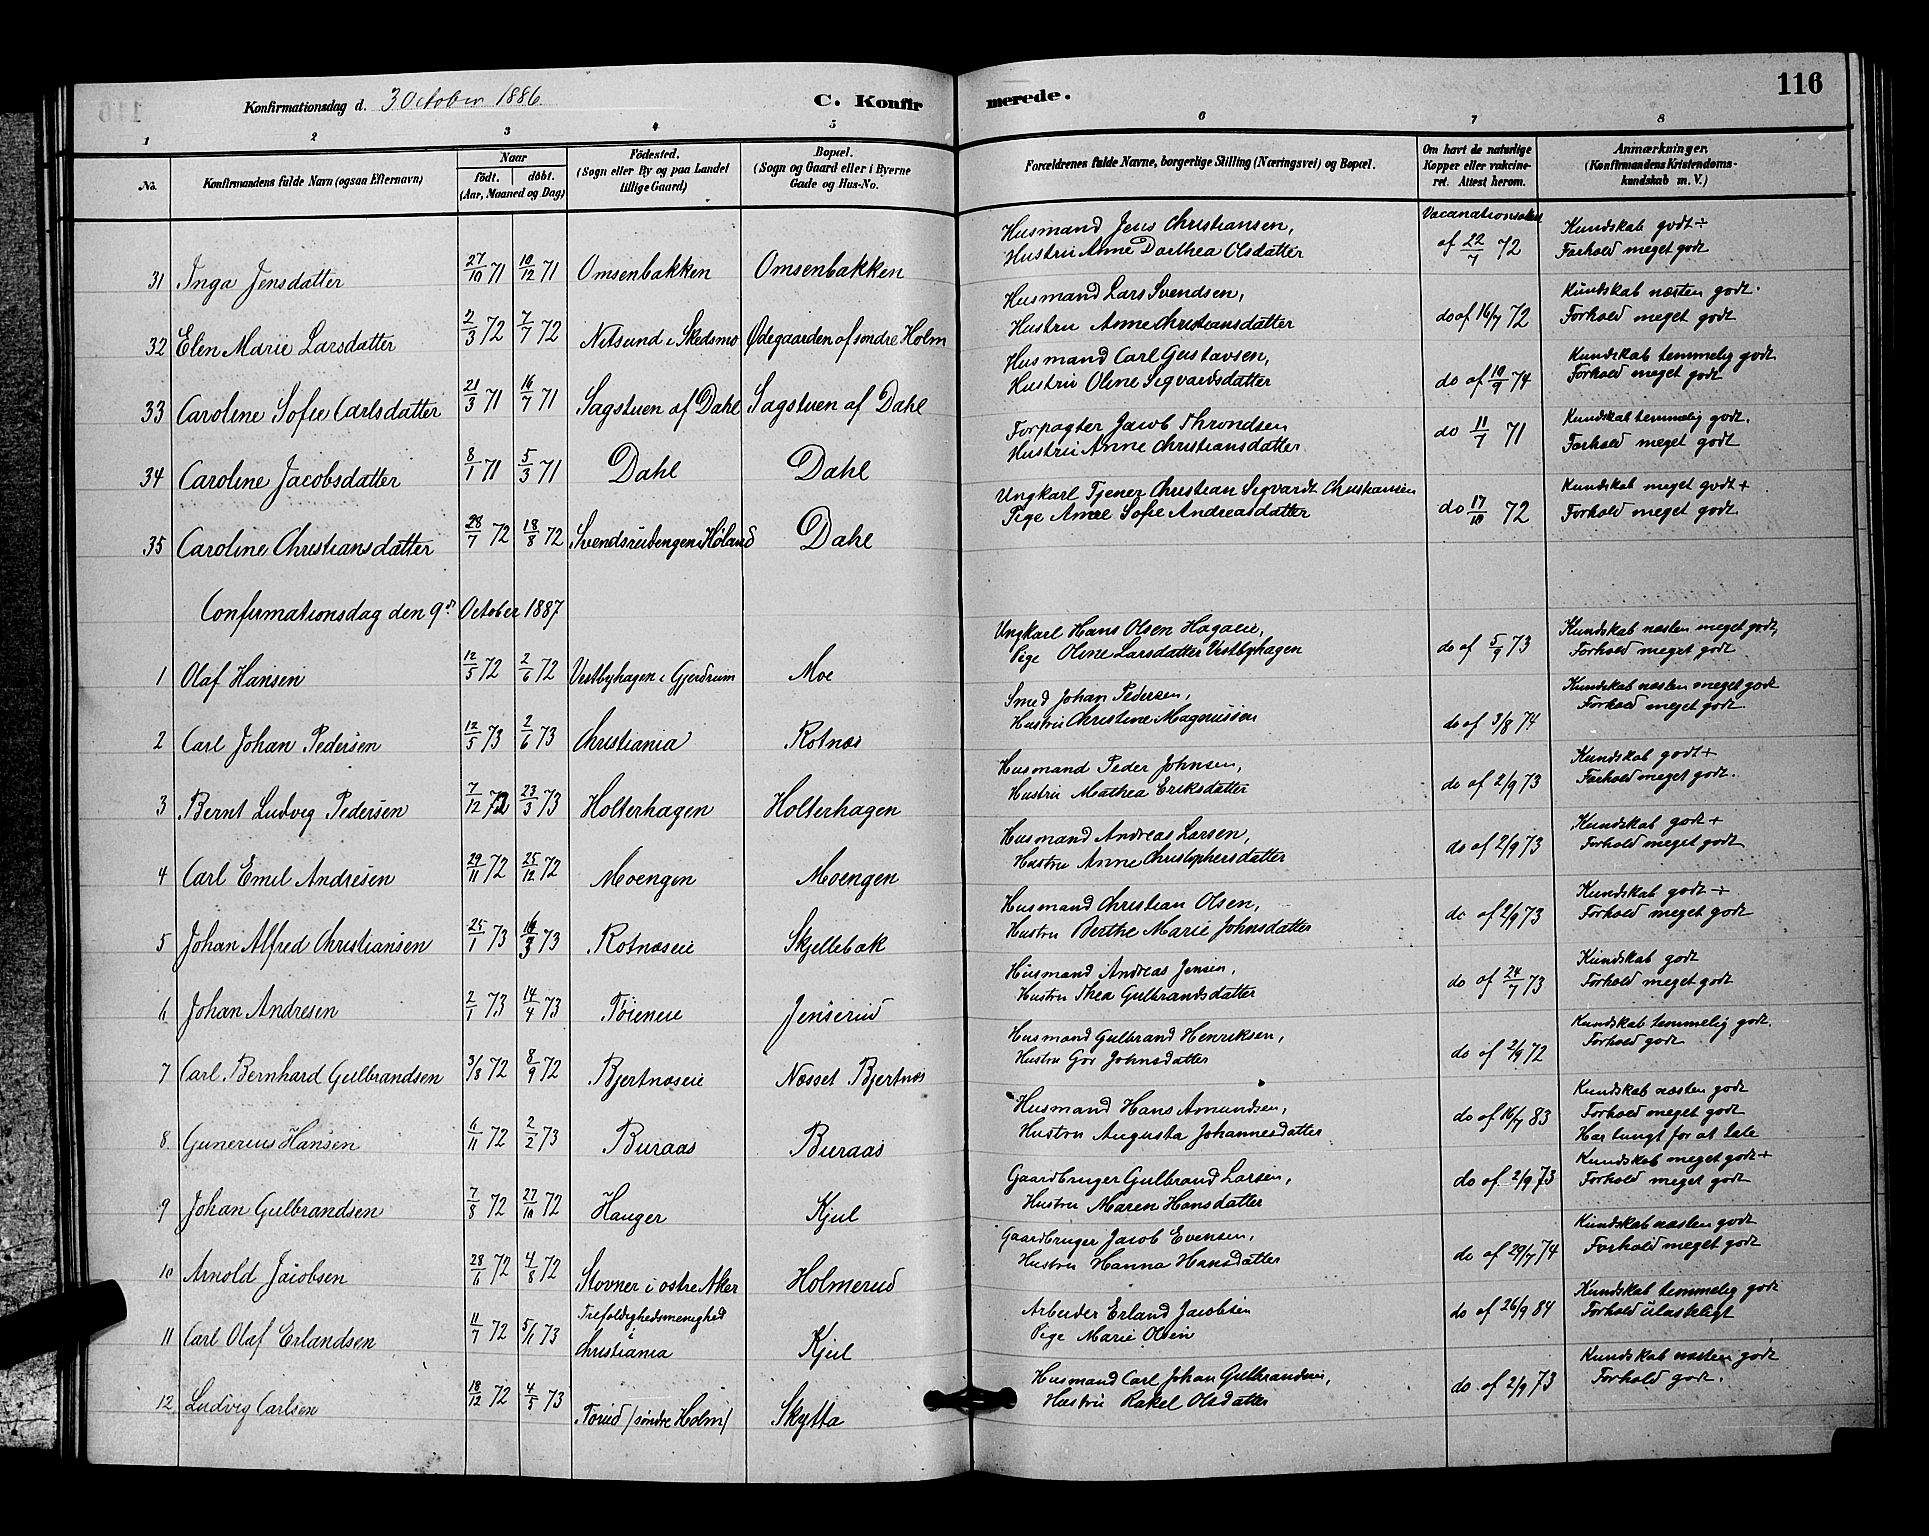 116
Konfirmationsdag d. 3 October 1886
C. Konfirmerede.
1 2 3 4 5 6 7 8
No.
Konfirmandens fulde Navn (ogsaa Efternavn)
Naar
født. døbt.
(Aar, Maaned og Dag)
Fødested.
(Sogn eller By og paa Landet
tillige Gaard)
Bopæl.
(Sogn og Gaard eller i Byerne
Gade og Hus-No.
Forældrenes fulde Navne, borgerlige Stilling (Næringsvei) og Bopæl.
Om havt de naturlige
Kopper eller vakcine-
ret. Attest herom.
Anmærkninger.
(Konfirmandens Kristendoms-
kundskab m. V.)
31 Inga Jensdatter 27/10 71 10/12 71 Omsenbakken Omsenbakken
Husmand Jens Christiansen,
Hustru Anne Dorthea Olsdatter
af 22/7 72
Kundskab godt +
Forhold meget godt
32 Elen Marie Larsdatter 2/3 72 7/7 72 Nitsund i Skedsmo Ødegaarden af søndre Holm
Husmand Lars Svendsen,
Hustru Anne Christiansdatter
do af 16/7 72
Kundskab næsten godt.
Forhold meget godt
33 Caroline Sofie Carlsdatter 21/3 71 16/7 71 Sagstuen af Dahl Sagstuen af Dahl
Husmand Carl Gustavsen,
Hustru Oline Sigvardsdatter
do af 10/9 74
Kundskab temmelig godt
Forhold meget godt
34 Caroline Jacobsdatter 8/1 71 5/3 71 Dahl Dahl
Forpagter Jacob Throndsen
Hustru Anne Christiansdatter
do 11/7 71
Kundskab temmelig godt.
Forhold meget godt
35 Caroline Christiansdatter 28/7 72 18/8 72 Svendsrudengen i Høland Dahl
Ungkarl Tjener Christian Sigvardt Christiansen
Pige Anne Sofie Andreasdatter
do 17/10 72
Kundskab meget godt +
Forhold meget godt
Confirmationsdag den 9de October 1887
1 Olaf Hansen 12/5 72 2/6 72 Vestbyhagen i Gjerdrum Moe
Ungkarl Hans Olsen
Pige Oline Larsdatter Vestbyhagen
do af 5/9 73
Kundskab næsten meget godt,
Forhold meget godt
2 Carl Johan Pedersen 12/5 73 2/6 73 Christiania Rotnæs
Smed Johan Pedersen,
Hustru Christine Magnussen
do af 3/8 74
Kundskab næsten meget godt
Forhold meget godt
3 Bernt Ludvig Pedersen 7/12 72 23/3 73 Holterhagen Holterhagen
Husmand Peder Johnsen,
Hustru Mathea Eriksdatter
do af 2/9 73
Kundskab godt +
Forhold meget godt.
4 Carl Emil Andresen 29/11 72 25/12 72 Moengen Moengen
Husmand Andreas Larsen,
Hustru Anne Christophersdatter
do af 2/9 73
Kundskab godt +
Forhold meget godt
5 Johan Alfred Christiansen 25/1 73 73 Rotnæseie Skjellebæk
Husmand Christian Olsen,
Hustru Berthe Marie Johnsdatter
do af 2/9 73
Kundskab godt +
Forhold meget godt
6 Johan Andresen 2/1 73 14/4 73 Tøieneie Jenserud
Husmand Andreas Jensen,
Hustru Thea Gulbrandsdatter
do af 24/7 73
Kundskab godt
Forhold meget godt
7 Carl Bernhard Gulbrandsen 3/8 72 8/9 72 Bjertnæseie Næsset Bjertnæs
Husmand Gulbrand Henriksen,
Hustru Johnsdatter
do af 2/9 72
Kundskab temmelig godt.
Forhold godt
8 Gunerius Hansen 6/11 72 2/2 73 Buraas Buraas
Husmand Hans Amundsen,
Hustru Augusta Johannesdatter
do af 16/7 83
Kundskab næsten godt
Forhold meget godt
Har tungt for at tale
9 Johan Gulbrandsen 7/8 72 27/10 72 Hauger Kjul
Gaardbruger Gulbrand Larsen,
Hustru Maren Hansdatter
do af 2/9 73
Kundskab meget godt +
Forhold meget godt
10 Arnold Jacobsen 28/6 72 4/8 72 Stovner i østre Aker Holmerud
Gaardbruger Jacob Evensen,
Hustru Hanna Hansdatter
do af 29/7 74
Kundskab næsten godt
Forhold meget godt
11 Carl Olaf Erlandsen 11/7 72 5/1 73 Trefoldighedsmenighed
i
Christiania Kjul
Arbeider Erland Jacobsen
Pige Marie Olsen
do af 26/9 84
Kundskab temmelig godt
Forhold ulasteligt
12 Ludvig Carlsen 18/12 72 4/5 73 Torud (søndre Holm) Skytta
Husmand Carl Johan Gulbrandsen,
Hustru Rakel Olsdatter
do af 2/9 73
Kundskab næsten godt
Forhold godt.